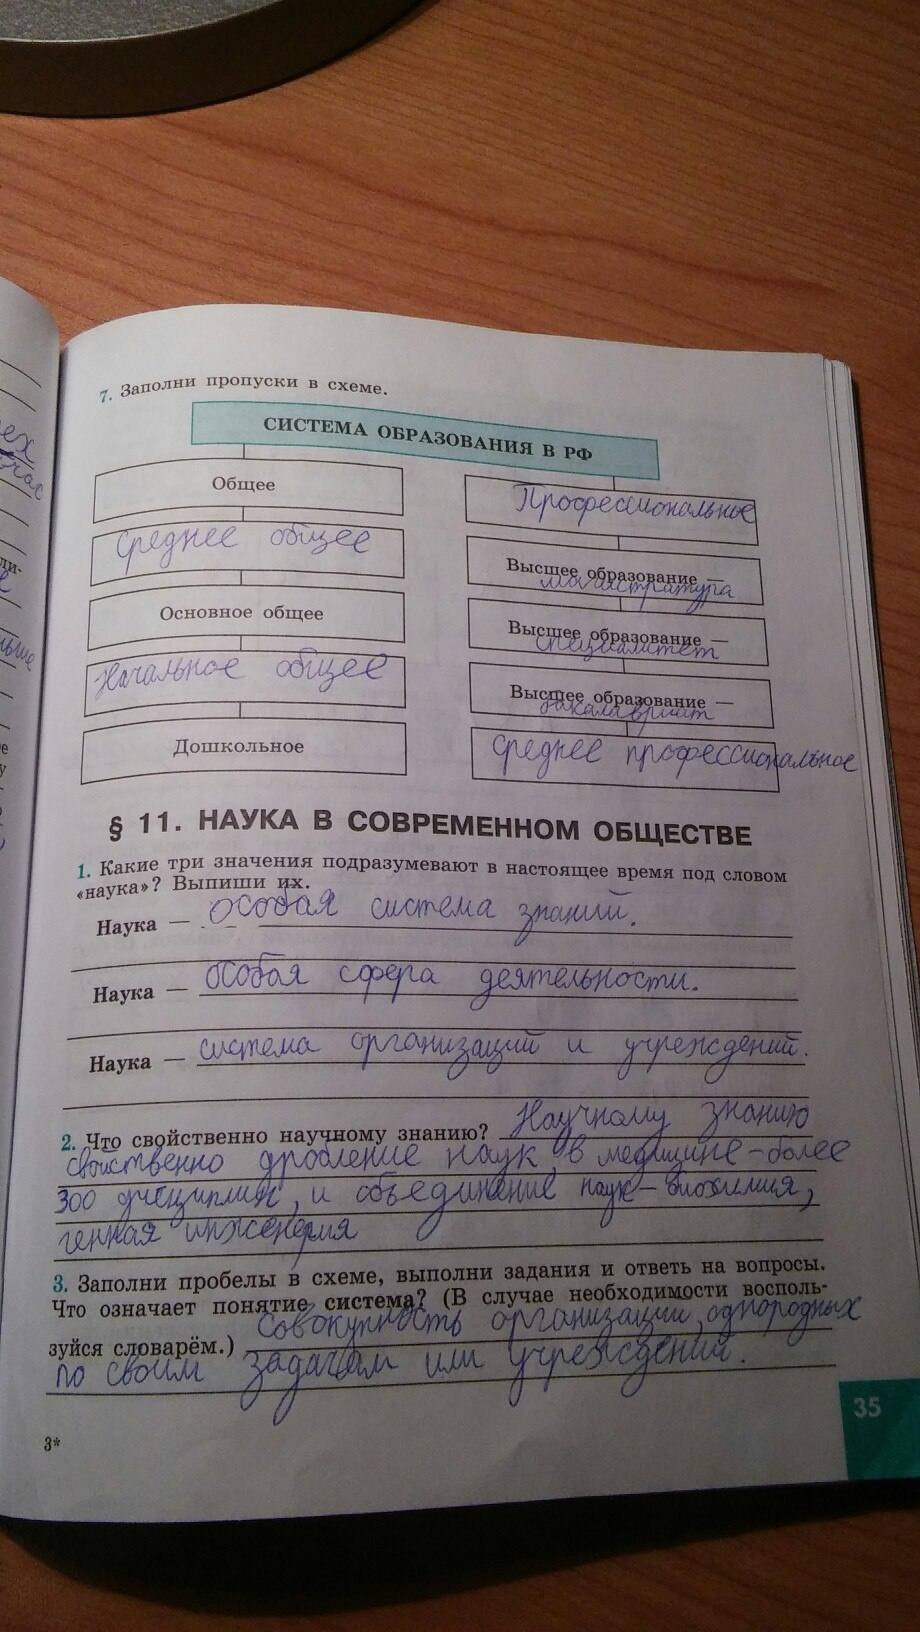 ех
час
ли-
ньше
е
у
7. Заполни пропуски в схеме.
СИСТЕМА ОБРАЗОВАНИЯ В РФ
Общее
Среднее общее
Основное общее
Начальное общее
Дошкольное
Профессиональное
Высшее образование —
магистратура
Высшее образование —
специалитет
Высшее образование —
бакалавриат
среднее профессиональное
§ 11. НАУКА В СОВРЕМЕННОМ ОБЩЕСТВЕ
1. Какие три значения подразумевают в настоящее время под словом
«наука»? Выпиши их.
Наука — особая система знаний.
Наука — особая сфера деятельности.
Наука — система организаций и учреждений.
2. Что свойственно научному знанию? Научному знанию
свойственно дробление наук, в медицине – более
300 дисциплин, и объединение наук – биохимия,
генная инженерия
3. Заполни пробелы в схеме, выполни задания и ответь на вопросы.
Что означает понятие система? (В случае необходимости восполь-
зуйся словарём.) Совокупность организаций, однородных
по своим задачам или учреждений.
35
3*